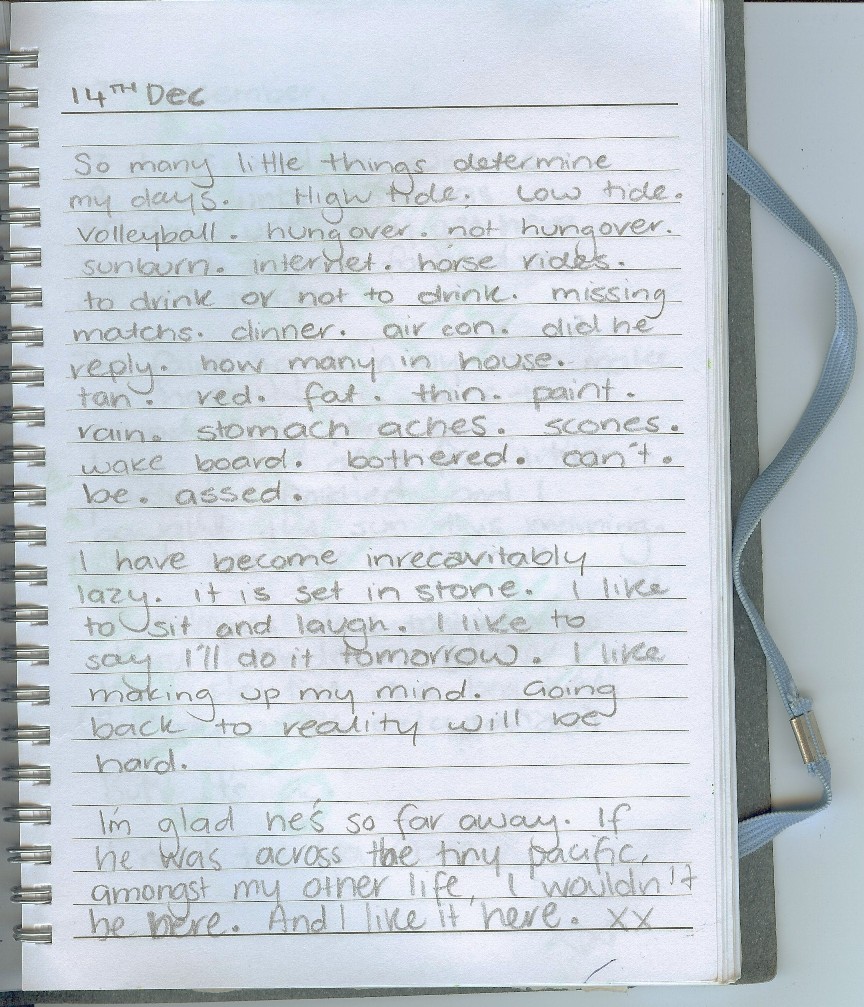 14TH Dec
So many little things determine
my days. High tide. Low tide.
Volleyball. hungover. not hungover.
sunburn. internet. horse rides.
to drink or not to drink. missing
matchs. dinner. air con. did he
reply. how many in house.
tan. red. fat. thin. paint.
rain. stomach aches. scones.
wake board. bothered. can't.
be. assed.
I have become inrecavitably
lazy. it is set in stone. I like
to sit and laugh. I like to
say I'll do it tomorrow. I like
making up my mind. Going
back to reality will be
hard.
I'm glad he's so far away. If
he was across the tiny pacific,
amongst my other life, I wouldn't
be here. And I like it here. xx